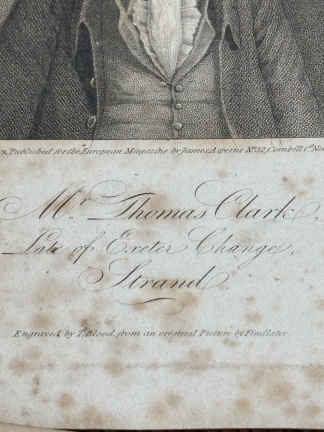 Published for the European Magazine by James Asperne No. 32, Cornhill 1st Nov
Mr. Thomas Clark,
Late of Exeter Change,
Strand.
Engraved by T. Blood, from an original Picture by Findlater.